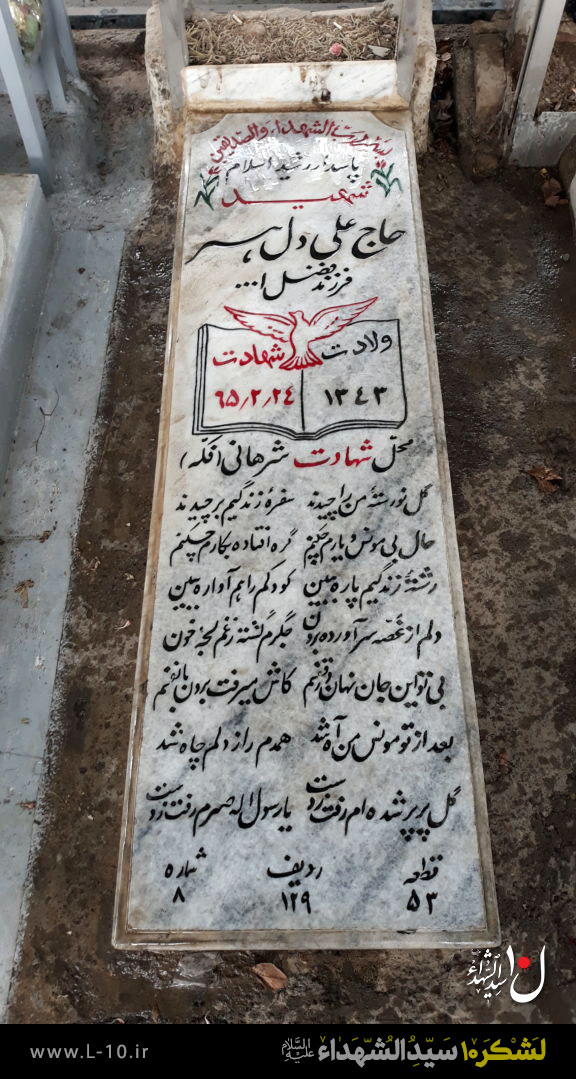 بسم رب الشهداء والصدیقین
پاسدار رشید اسلام
شهید
حاج علی دل بسر
فرزند فضل ا...
ولادت شهادت
۱۳۴۳ ۶۵/۲/۲۴
محل شهادت شرهانی (فکه)
گل نورستهٔ من را چیدند سفرهٔ زندگیم برچیدند
حال بی مونس و یارم چکنم گره افتاده بکارم چکنم
رشتهٔ زندگیم پاره ببین کودکم را هم آواره ببین
دلم از غصه سر آورده برون جگرم گشته ز غم لجهٔ خون
بی تو این جان نهان در قفسم کاش میرفت برون با نفسم
بعد از تو مونس من آه شد همدم راز دلم چاه شد
گل پرپر شده ام رفت ز دست یا رسول اله صبرم رفت ز دست
قطعه ردیف شماره
۵۳ ۱۲۹ ۸
ل۱۰ سیدالشهداء
www.L-10.ir لشکر۱۰ سیدالشهداء علیه السلام